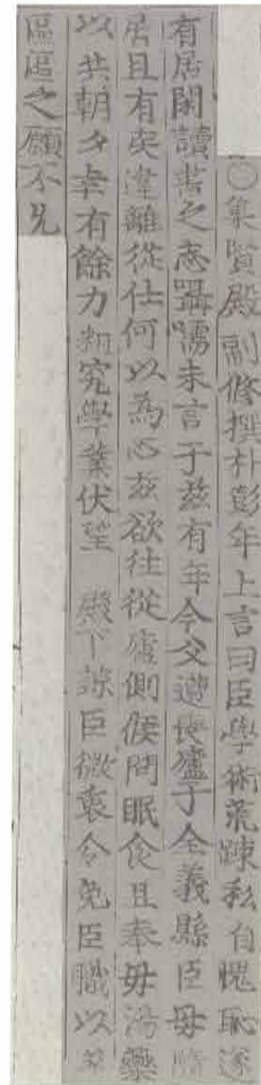 ○集賢殿副修撰朴彭年上言曰臣學術荒踈私自愧恥遂
有居閑讀書之志囁嚅未言于玆有年今父遭喪廬于全義縣臣母隨
居且有矣違離從仕何以爲心玆欲往從廬側候問眠食且奉毋湯藥
以共朝夕幸有餘力粗究學業伏望 殿下諒臣微衷令免臣職以
區區之願不允